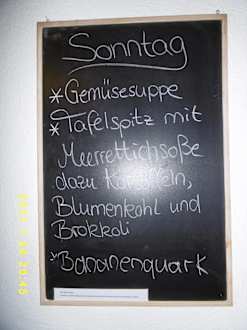 Sonntag
* Gemüsesuppe
* Tafelspitz mit
Meerrettichsoße
dazu Kartoffeln,
Blumenkohl und
Brokkoli
* Bananenquark